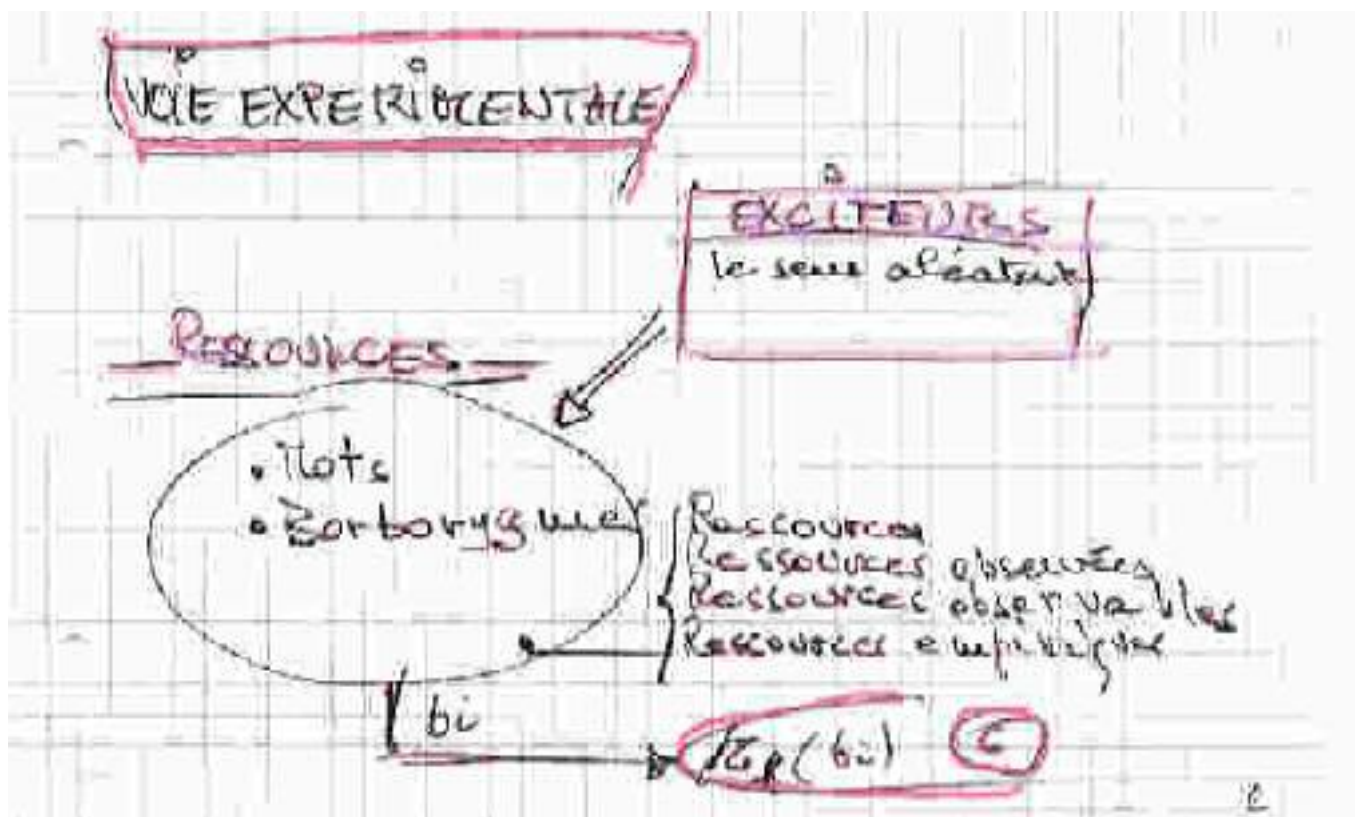 VOIE EXPERIMENTALE
EXCITEURS
le sens aléatoire
RESSOURCES
• Mots
• Borborygmes
Ressources
Ressources observées
Ressources observables
Ressources empiriques
bi
(bi)
C